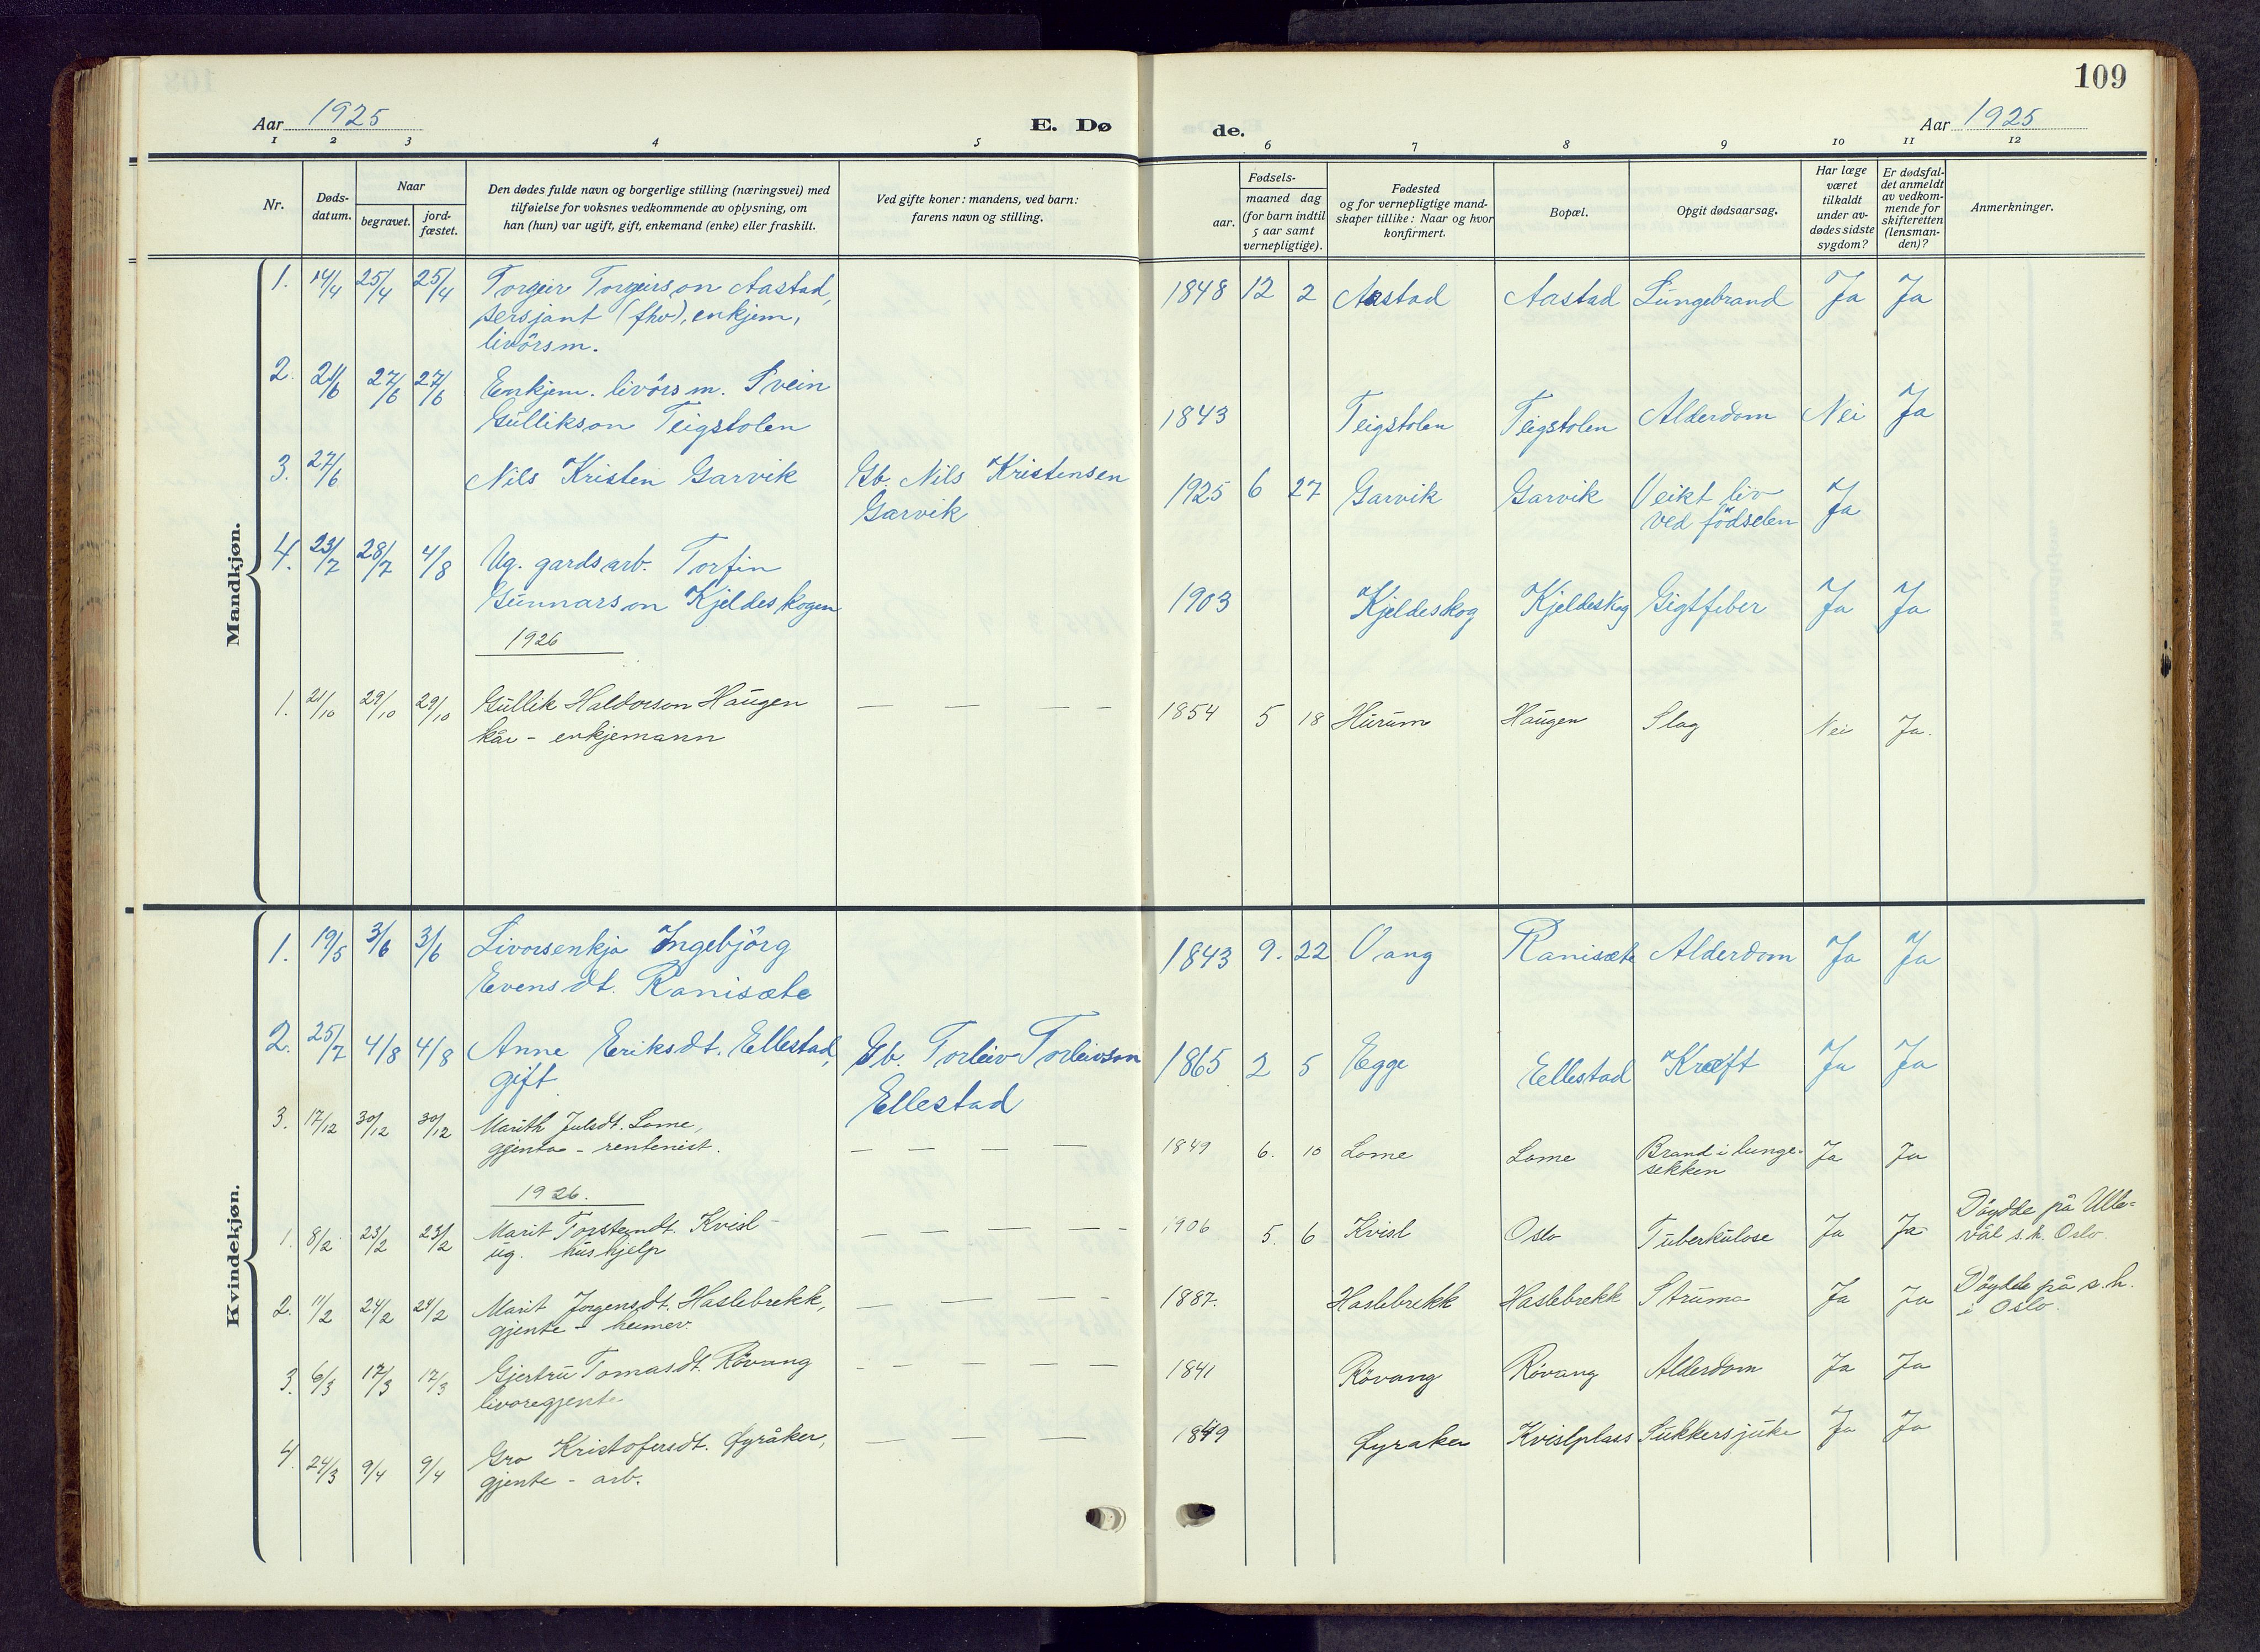 109
Aar 1925
E. Dø
de.
Aar 1925
1 2 3 4 5 6 7 8 9 10 11 12
Nr.
Døds-
datum.
Naar
begravet.
jord-
fæstet.
Den dødes fulde navn og borgerlige stilling (næringsvei) med
tilføielse for voksnes vedkommende av oplysning, om
han (hun) var ugift, gift, enkemand (enke) eller fraskilt.
Ved gifte koner: mandens, ved barn:
farens navn og stilling.
Fødsels-
aar.
maaned dag
(for barn indtil
5 aar samt
vernepligtige).
Fødested
og for vernepligtige mand-
skaper tillike: Naar og hvor
konfirmert.
Bopæl.
Opgit dødsaarsag.
Har læge
været
tilkaldt
under av-
dødes sidste
sygdom?
Er dødsfal-
det anmeldt
av vedkom-
mende for
skifteretten
(lensman-
den)?
Anmerkninger.
Mandkjøn.
1. 14/4 25/4 25/4 Torgeir Torgeirson Aastad, 1848 12 2 Aastad Aastad Lungebrand Ja Ja
sersjant (fhv), enkjem,
livörsm.
2. 21/6 27/6 27/6 Enkjem. livörsm. Svein
Gullikson Teigstolen 1843 Teigstolen Teigstolen Alderdom Nei Ja
3. 27/6 Nils Kristen Garvik Gb. Nils Kristensen 1925 6 27 Garvik Garvik Veikt liv Ja
Garvik ved födselen
4. 23/7 28/7 4/8 Ug. gardsarb. Torfin
Gunnarson Kjeldeskogen 1903 Kjeldeskog Kjeldeskog Gigtfeber Ja Ja
1926
1. 21/10 29/10 29/10 Gullik Haldorson Haugen — — — — 1854 5 18 Hurum Haugen Slag Nei Ja.
kår - enkjemann
Kvindekjøn.
1. 19/5 3/6 3/6 Livorsenkja Ingebjörg 1843 9. 22 Vang Ranisæte Alderdom Ja Ja
Evensdt. Ranisæte
2. 25/7 4/8 4/8 Anne Eriksdt. Ellestad, Gb. Torleiv Torleivson 1865 2 5 Egge Ellestad Kræft Ja Ja
gift Ellestad
3. 17/12 30/12 30/12 Marith Julsdt. Lome, — — — — 1849 6. 10 Lome Lome Brand i lunge- Ja Ja
gjenta - rentenist. sekken
1926.
1. 8/2 23/2 23/2 Marit Torsteindt. Kvisl - — — — — 1906 5. 6 Kvisl Oslo Tuberkulose Ja Ja Döydde på Ulle-
ug. hushjelp vål s.h. Oslo.
2. 11/2 24/2 24/2 Marit Jorgensdt. Haslebrekk, — — — — 1887. Haslebrekk Haslebrekk Struma Ja Ja Döydde på s.h.
gjente - heimev. i Oslo.
3. 6/3 17/3 17/3 Gjertru Tomasdt. Rövang — — — — — 1841 Rövang Rövang Alderdom Ja Ja
livoregjente
4 24/3 9/4 9/4 Gro Kristofersdt. Øyråker, — — — — 1849 Øyraker Kvislplass Sukkersjuke Ja Ja
gjente - arb.